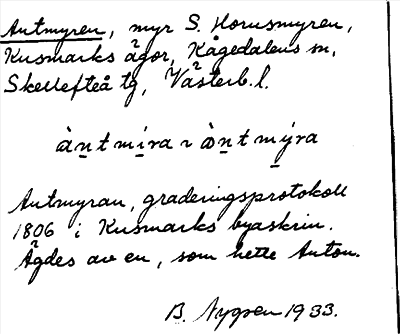 Antmyren, myr S. Hornsmyren,
Kusmarks ägor, Kågedalens sn,
Skellefteå tg, Västerb. l.
àn̲t mi̲ra ~ àn̲t mý̲ra
Antmyran, graderingsprotokoll
1806 i Kusmarks byaskrin.
Ägdes av en, som hette Anton.
B. Nygren 1933.